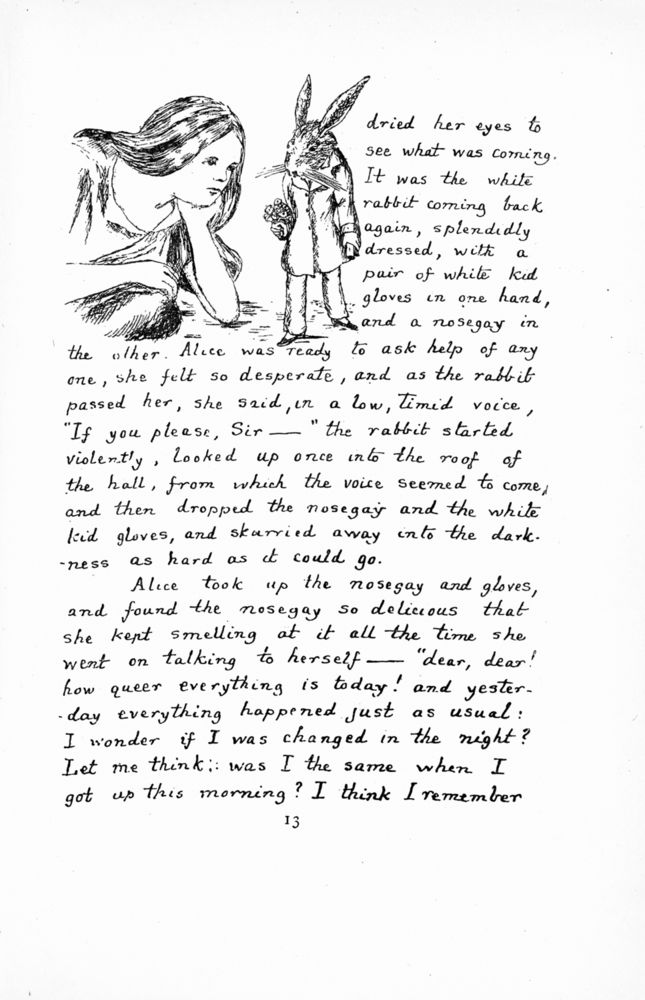 dried her eyes to
see what was coming.
It was the white
rabbit coming back
again, splendidly
dressed, with a
pair of white kid
gloves in one hand,
and a nosegay in
the other. Alice was ready to ask help of any
one, she felt so desperate, and as the rabbit
passed her, she said, in a low, timid voice,
"If you please, Sir —" the rabbit started
violently, looked up once into the roof of
the hall, from which the voice seemed to come,
and then dropped the nosegay and the white
kid gloves, and skurried away into the dark-
-ness as hard as it could go.
Alice took up the nosegay and gloves,
and found the nosegay so delicious that
she kept smelling at it all the time she
went on talking to herself — "dear, dear!
how queer everything is today! and yester-
-day everything happened just as usual:
I wonder if I was changed in the night?
Let me think: was I the same when I
got up this morning? I think I remember
13